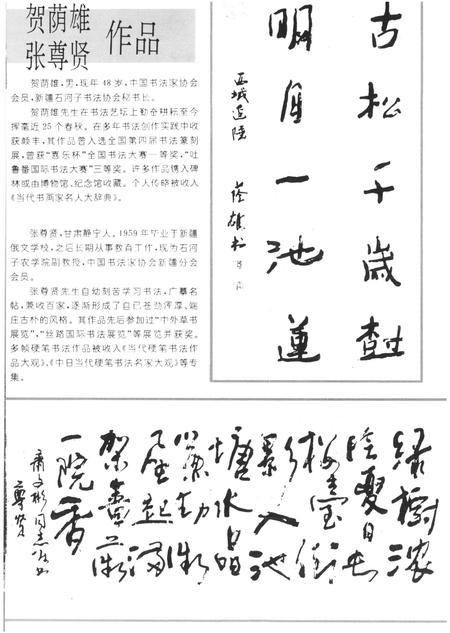 贺荫雄
张尊贤
作品
贺荫雄,男,现年48岁,中国书法家协会
会员,新疆石河子书法协会秘书长。
贺荫雄先生在书法艺坛上勤奋耕耘至今
挥毫近25个春秋。在多年书法创作实践中收
获颇丰,其作品曾入选全国第四届书法篆刻
展,曾获“喜乐杯”全国书法大赛一等奖,“吐
鲁番国际书法大赛”三等奖。许多作品镌入碑
林或由博物馆、纪念馆收藏。个人传略被收入
《当代书画家名人大辞典》。
张尊贤,甘肃静宁人。1959年毕业于新疆
俄文学校,之后长期从事教育工作,现为石河
子农学院副教授,中国书法家协会新疆分会
会员。
张尊贤先生自幼刻苦学习书法,广摹名
帖,兼收百家,逐渐形成了自己苍劲浑厚、端
庄古朴的风格。其作品先后参加过“中外草书
展览”,“丝路国际书法展览”等展览并获奖。
多帧硬笔书法作品被收入《当代硬笔书法作
品大观》、《中日当代硬笔书法名家大观》等专
集。
古松千歲
明月一池蓮
蔭雄书
绿樹浓
陰夏日长
楼臺
影入池
塘水晶
帘动微
風起满
架薔薇
一院香
同志
尊贤